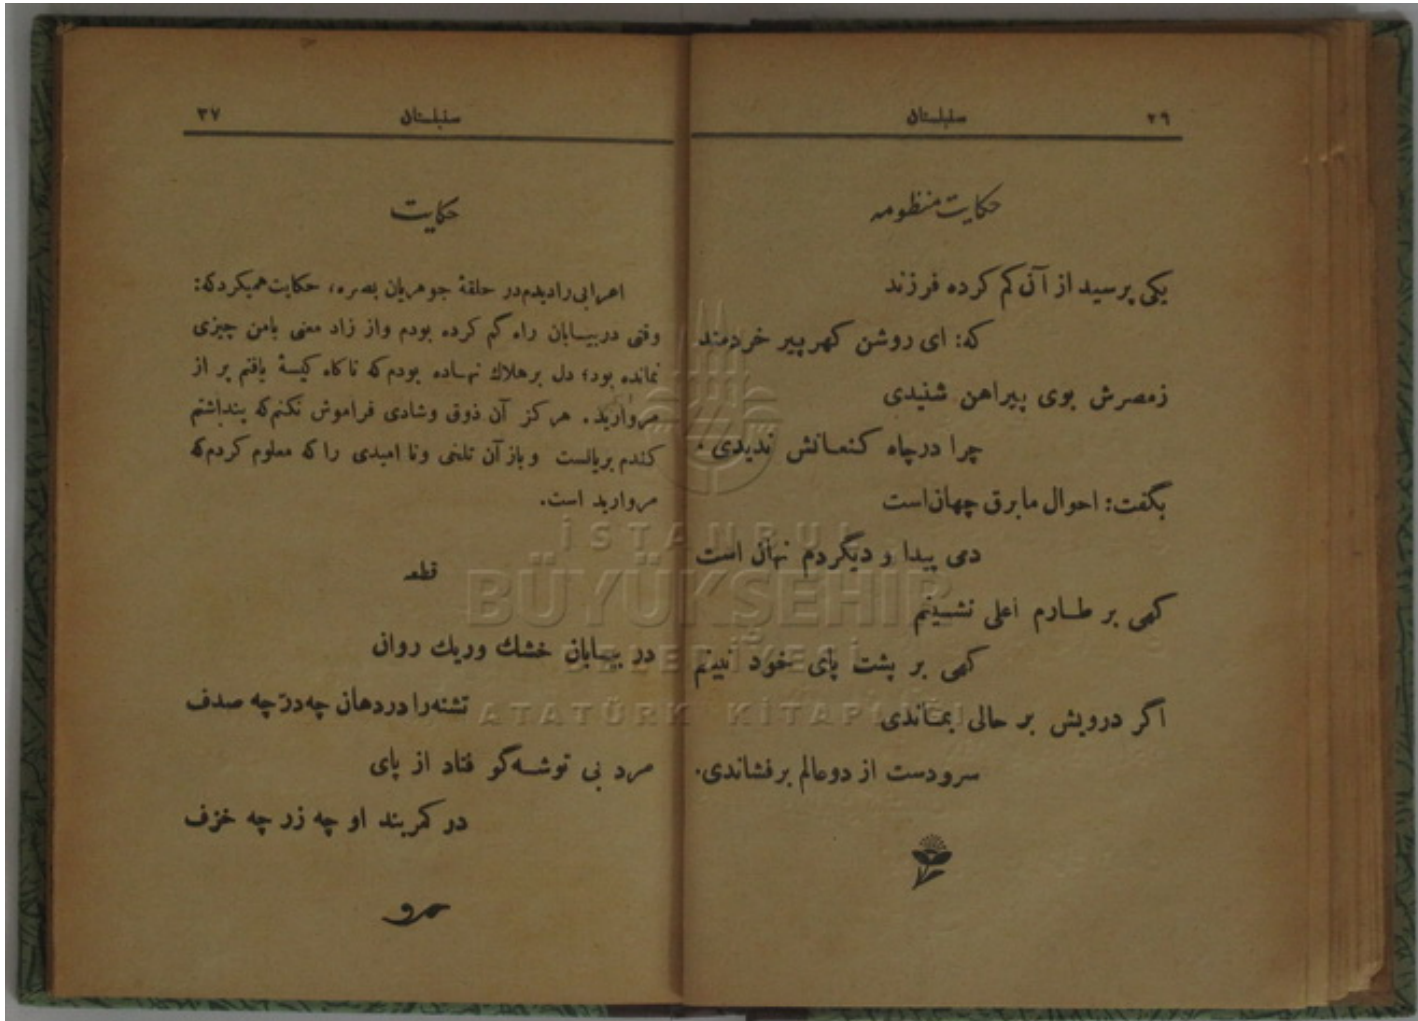 ٢٦
سنبلستان
حكايت منظومه
يكى پرسيد از آن كم كرده فرزند
كه: اى روشن كهر پير خردمند
زمصرش بوى پيراهن شنيدى
چرا درچاه كنعانش نديدى.
بگفت: احوال ما برق جهان است
دمى پيدا و ديگردم نهان است
كهى بر طارم اعلى نشينم
كهى بر پشت پاى خود نبينم
اگر درويش بر حالى بماندى
سرودست از دوعالم برفشاندى.
سنبلستان
٣٧
حكايت
اعرابى راديدم در حلقهٔ جوهريان بصره، حكايت هميكردكه:
وقتى دربيابان راه گم كرده بودم واز زاد معنى بامن چيزى
نمانده بود؛ دل برهلاك نهاده بودم كه ناكاه كيسهٔ يافتم پر از
مرواريد. هركز آن ذوق وشادى فراموش نكنم كه پنداشتم
كندم بريانست وباز آن تلخى ونا اميدى را كه معلوم كردم كه
مرواريد است.
قطعه
در بيابان خشك وريك روان
تشنه را دردهان چه درّ چه صدف
مرد بى توشه گو فتاد از پاى
در كمربند او چه زر چه خزف
İSTANBUL
BÜYÜKŞEHİR
BELEDİYESİ
ATATÜRK KİTAPLIĞI